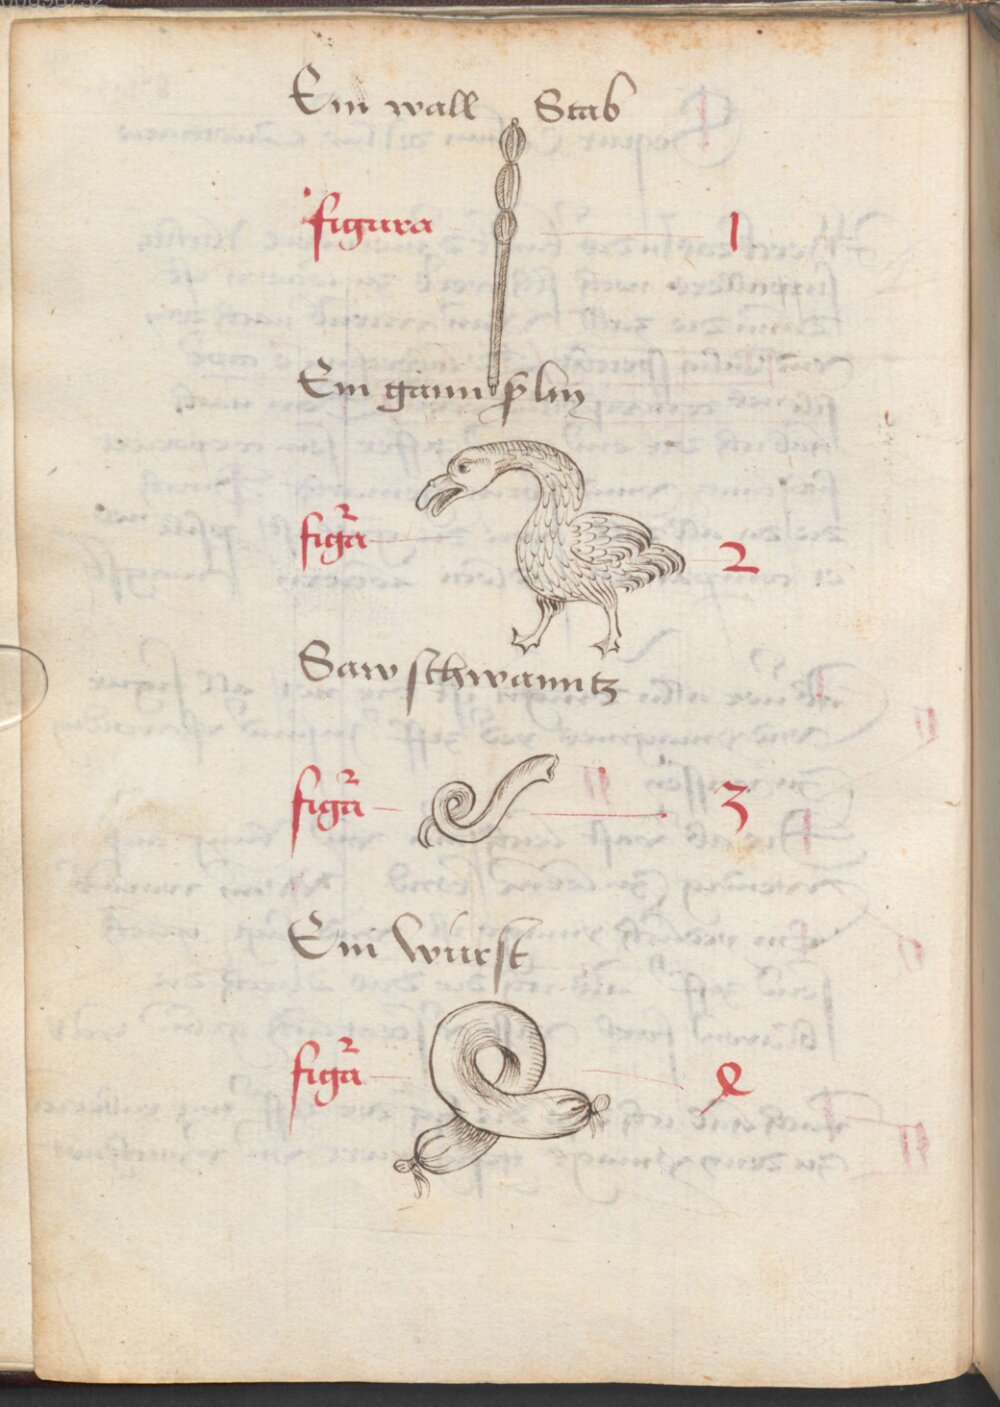 Ein wall Stab
figura 1
Ein ganns
figũa 2
Saw schwanntz
figũa 3
Ein Wurst
figũa 4